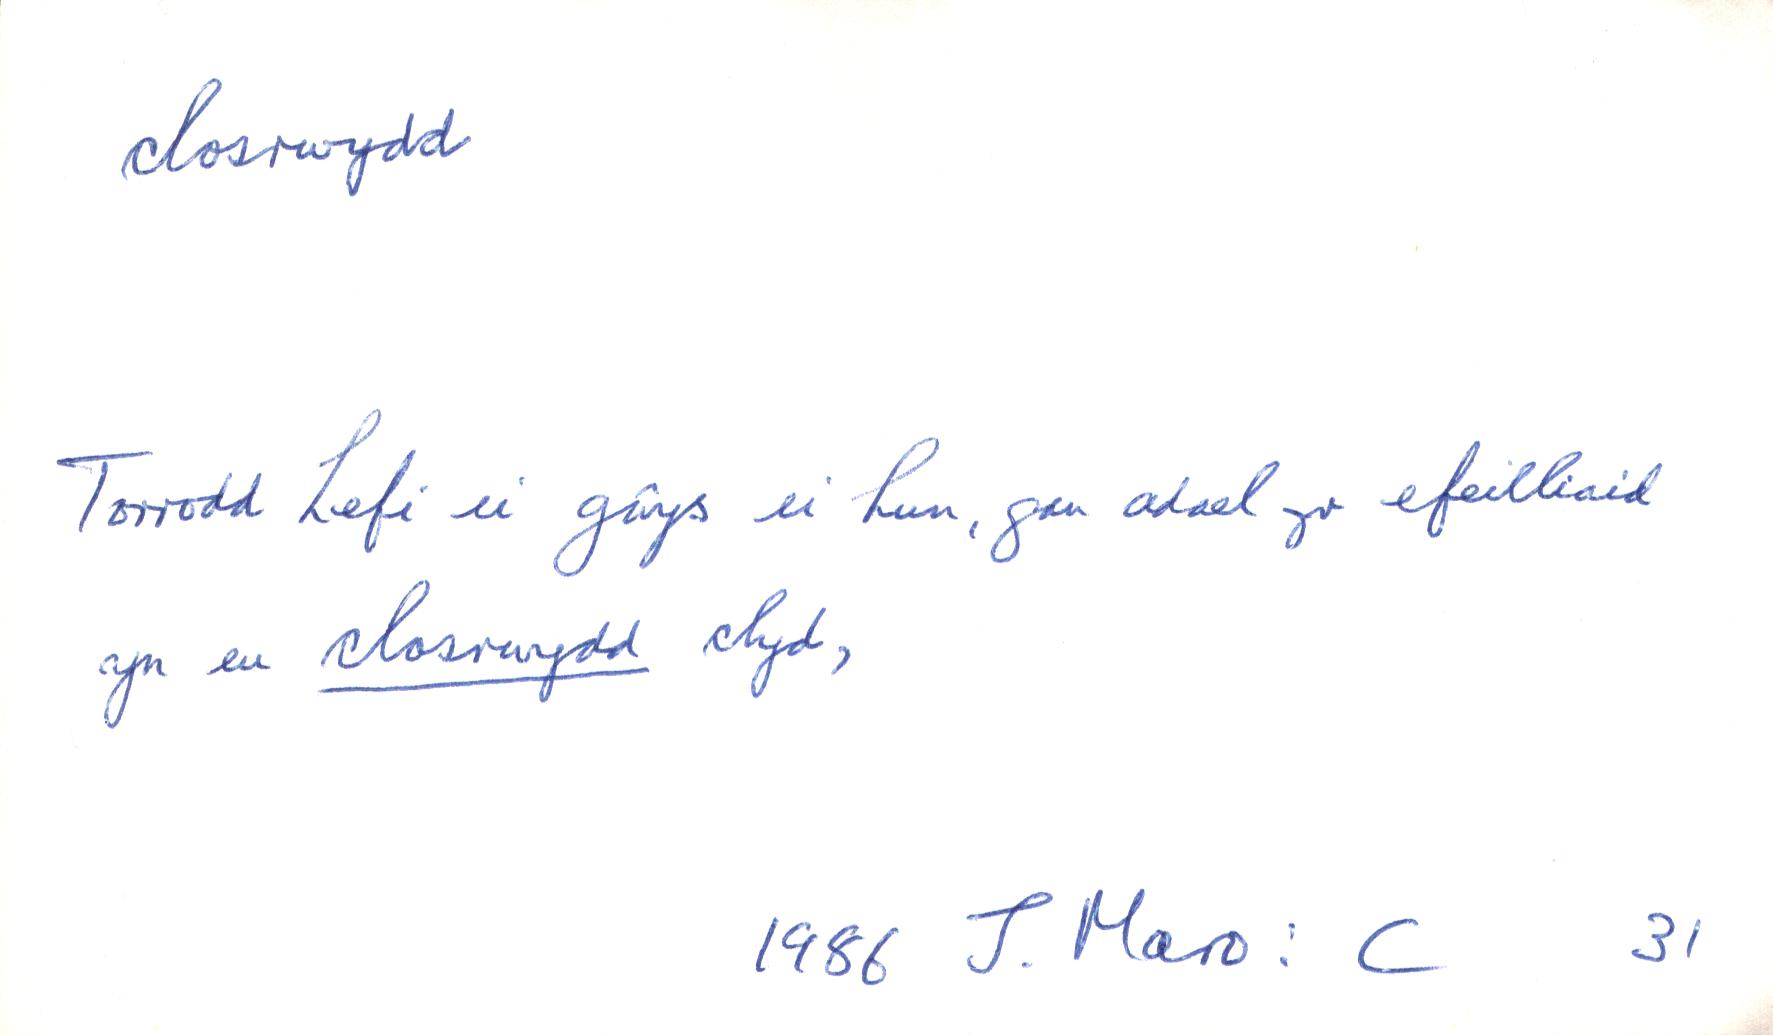 closrwydd
Torrodd Lefi ei gŵys ei hun, gan adael yr efeilliaid
yn eu closrwydd clyd,
1986 J. Maro: C 31